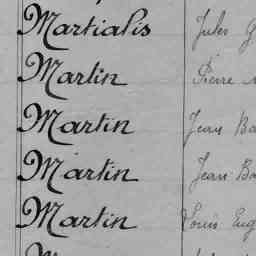 Martialis Jules
Martin Pierre
Martin Jean Ba
Martin Jean Ba
Martin Louis Eug